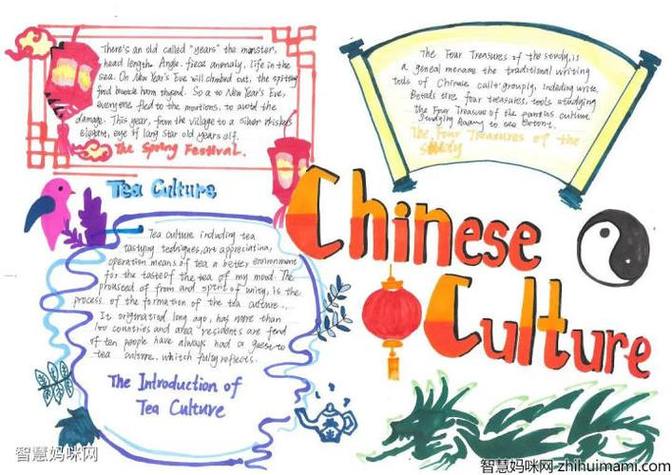 There's an old called "years" the monster,
head length Angle. fiece anomaly, life in the
sea. On New Year's Eve will climbed out, the
find bneeck harm
everyone fled to the mountions, to avoid the
damage. This year, from the village to a silver
elegant, eye if lang star old years elf.
The Spring Festival.
The Four Treasures of the study, is
a geneal menome the traditional writing
tools of Chinese calligraphy, including write,
four treasures, tools studying
the Four Treasure of the culture
Studying
The Four Treasures of the
Study
Tea Culture
Chinese
Culture
Tea culture including tea
tasting are appreciation,
operation means of tea a better environment
for the taste of the tea of my mood. The
of from and spirit of unity, is the
process of the formation of the tea culture.
It originatied long ago, has more than
100 countries and area residents are fend
of ten people have always had a guest to
tea culture, whitch fully reflects.
The Introduction of
Tea Culture
智慧妈咪网
智慧妈咪网-zhihuimami.com